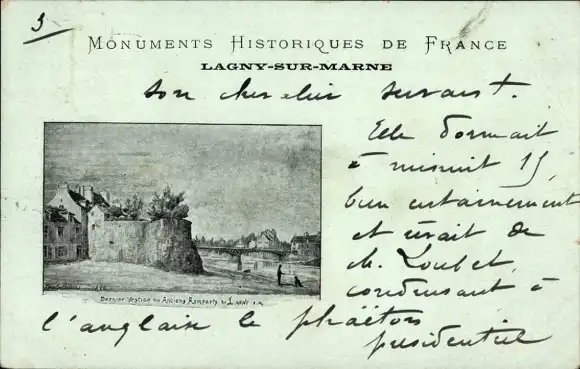 3
MONUMENTS HISTORIQUES DE FRANCE
LAGNY-SUR-MARNE
son chevalier servant.
Elle dormait
à minuit 15,
bien certainement
et rêvait de
M. Loubet,
conduisant à
l'anglaise le phaéton
présidentiel
DERNIER VESTIGE DES ANCIENS REMPARTS DE LAGNY S.M.